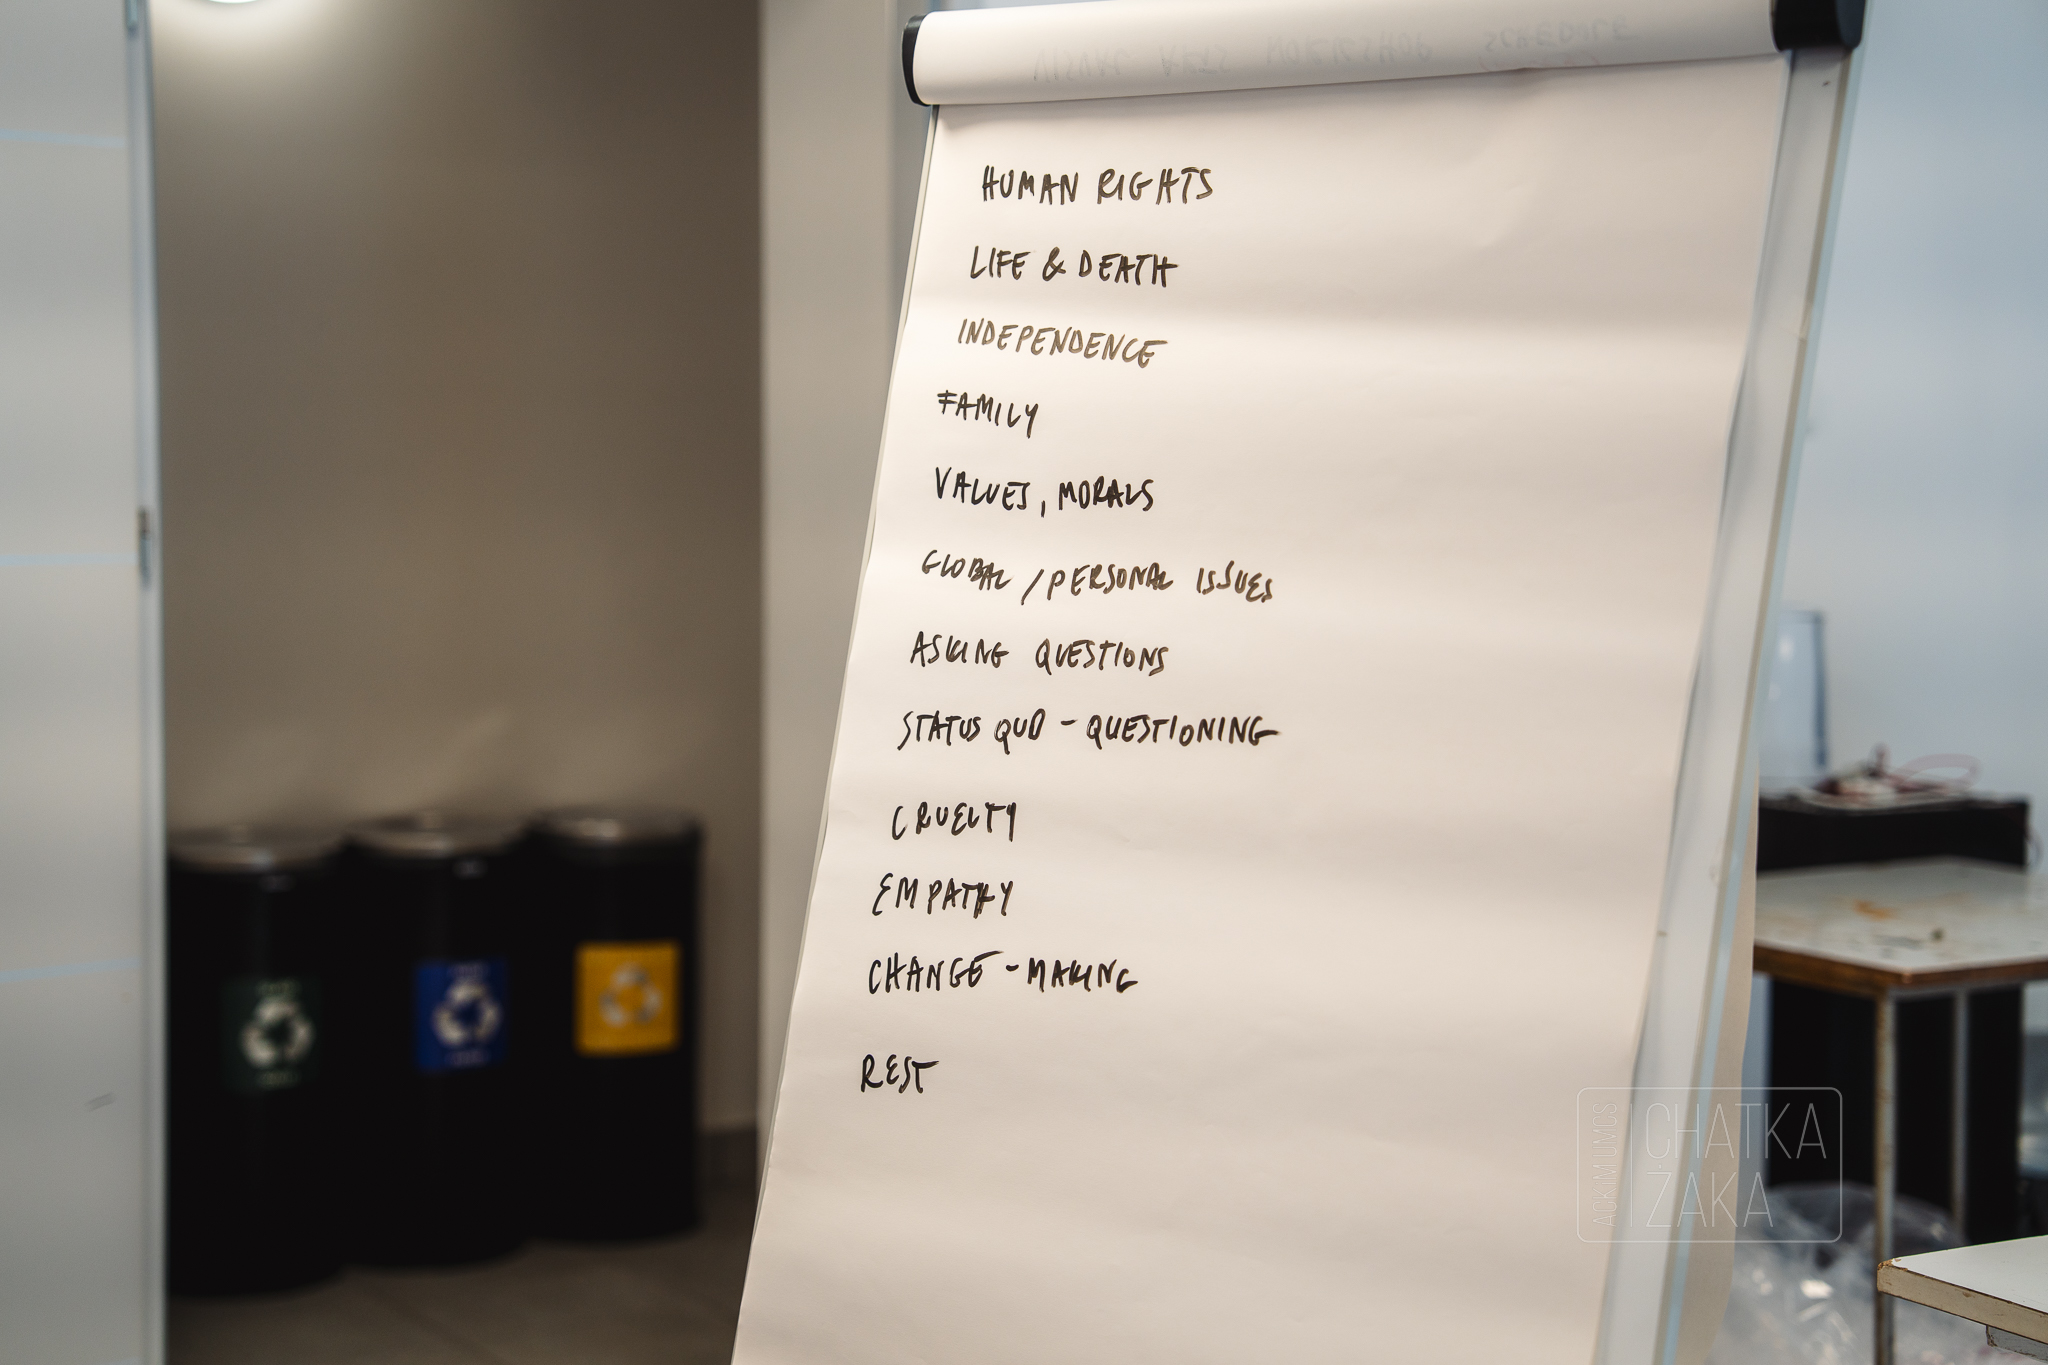 HUMAN RIGHTS
LIFE & DEATH
INDEPENDENCE
FAMILY
VALUES, MORALS
GLOBAL / PERSONAL ISSUES
ASKING QUESTIONS
STATUS QUO - QUESTIONING
CRUELTY
EMPATHY
CHANGE - MAKING
REST
ACKIM UMCS
CHATKA
ŻAKA